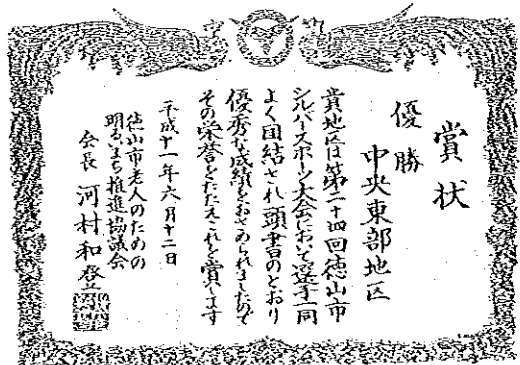 賞状
優勝
中央東部地区
貴地区は第二十四回徳山市
シルバースポーツ大会において選手一同
よく団結され頭書のとおり
優秀な成績をおさめられましたので
その栄誉をたたえこれを賞します
平成十一年六月十二日
徳山市老人のための
明るいまち推進協議会
会長 河村和登